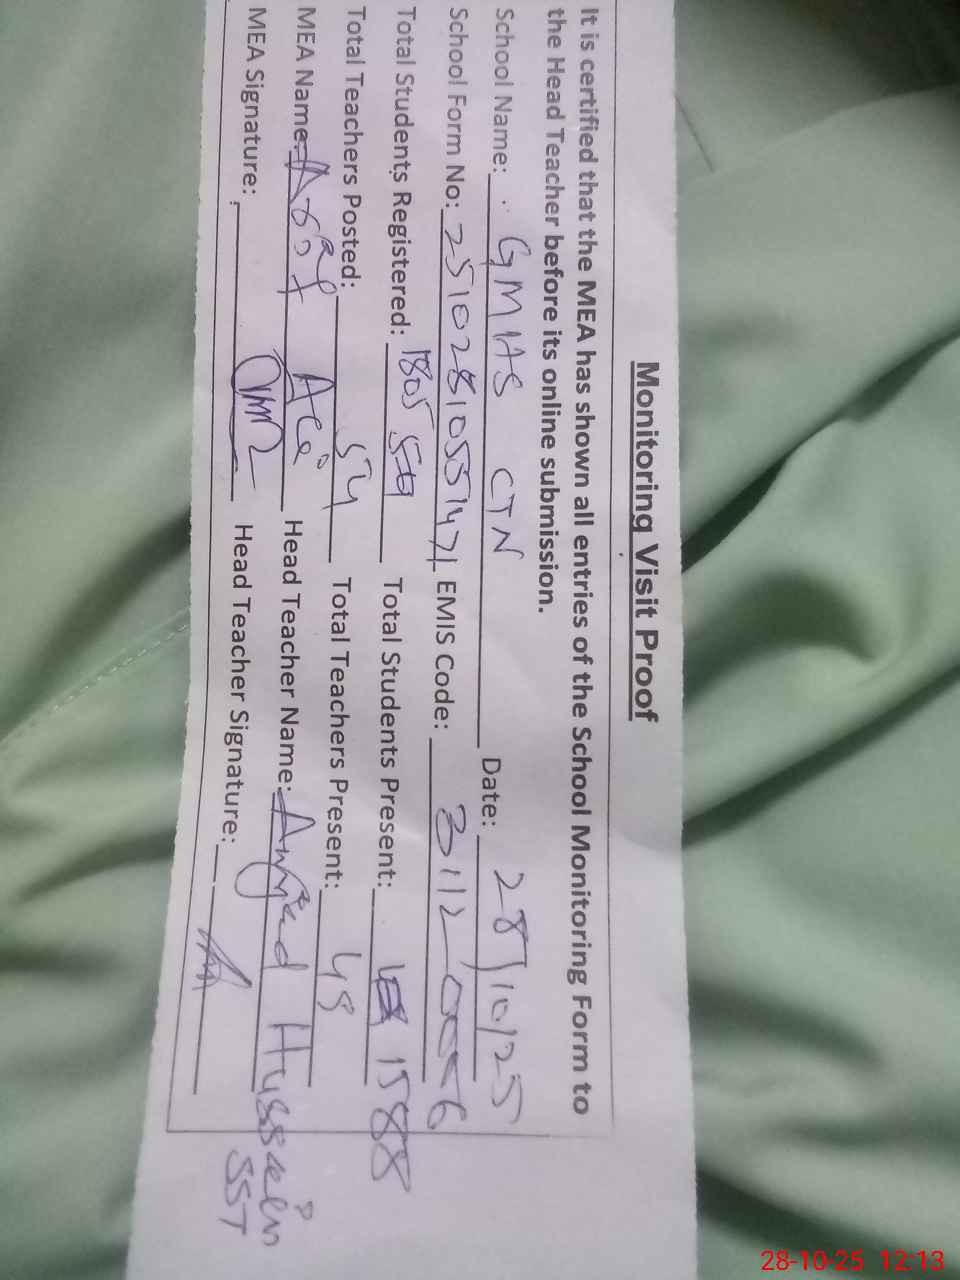 Monitoring Visit Proof
It is certified that the MEA has shown all entries of the School Monitoring Form to
the Head Teacher before its online submission.
School Name: GMHS CTN Date: 28/10/25
School Form No: EMIS Code: 31120006
Total Students Registered: 1805 Total Students Present: 1588
Total Teachers Posted: 54 Total Teachers Present: 48
MEA Name: Asif Ali Head Teacher Name: Amjad Hussain
SST
MEA Signature: Head Teacher Signature:
28-10-25 12:13